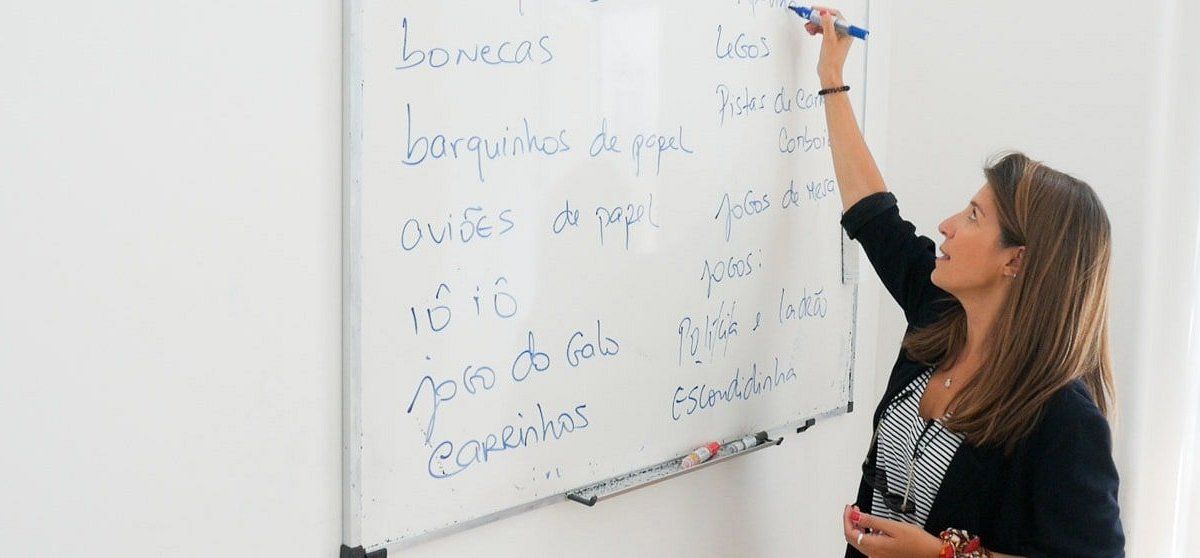 bonecas
barquinhos de papel
aviões de papel
iô iô
jogo do Galo
carrinhos
Legos
Pistas de
Jogos de Mesa
Jogos:
Polícia e ladrão
Escondidinha